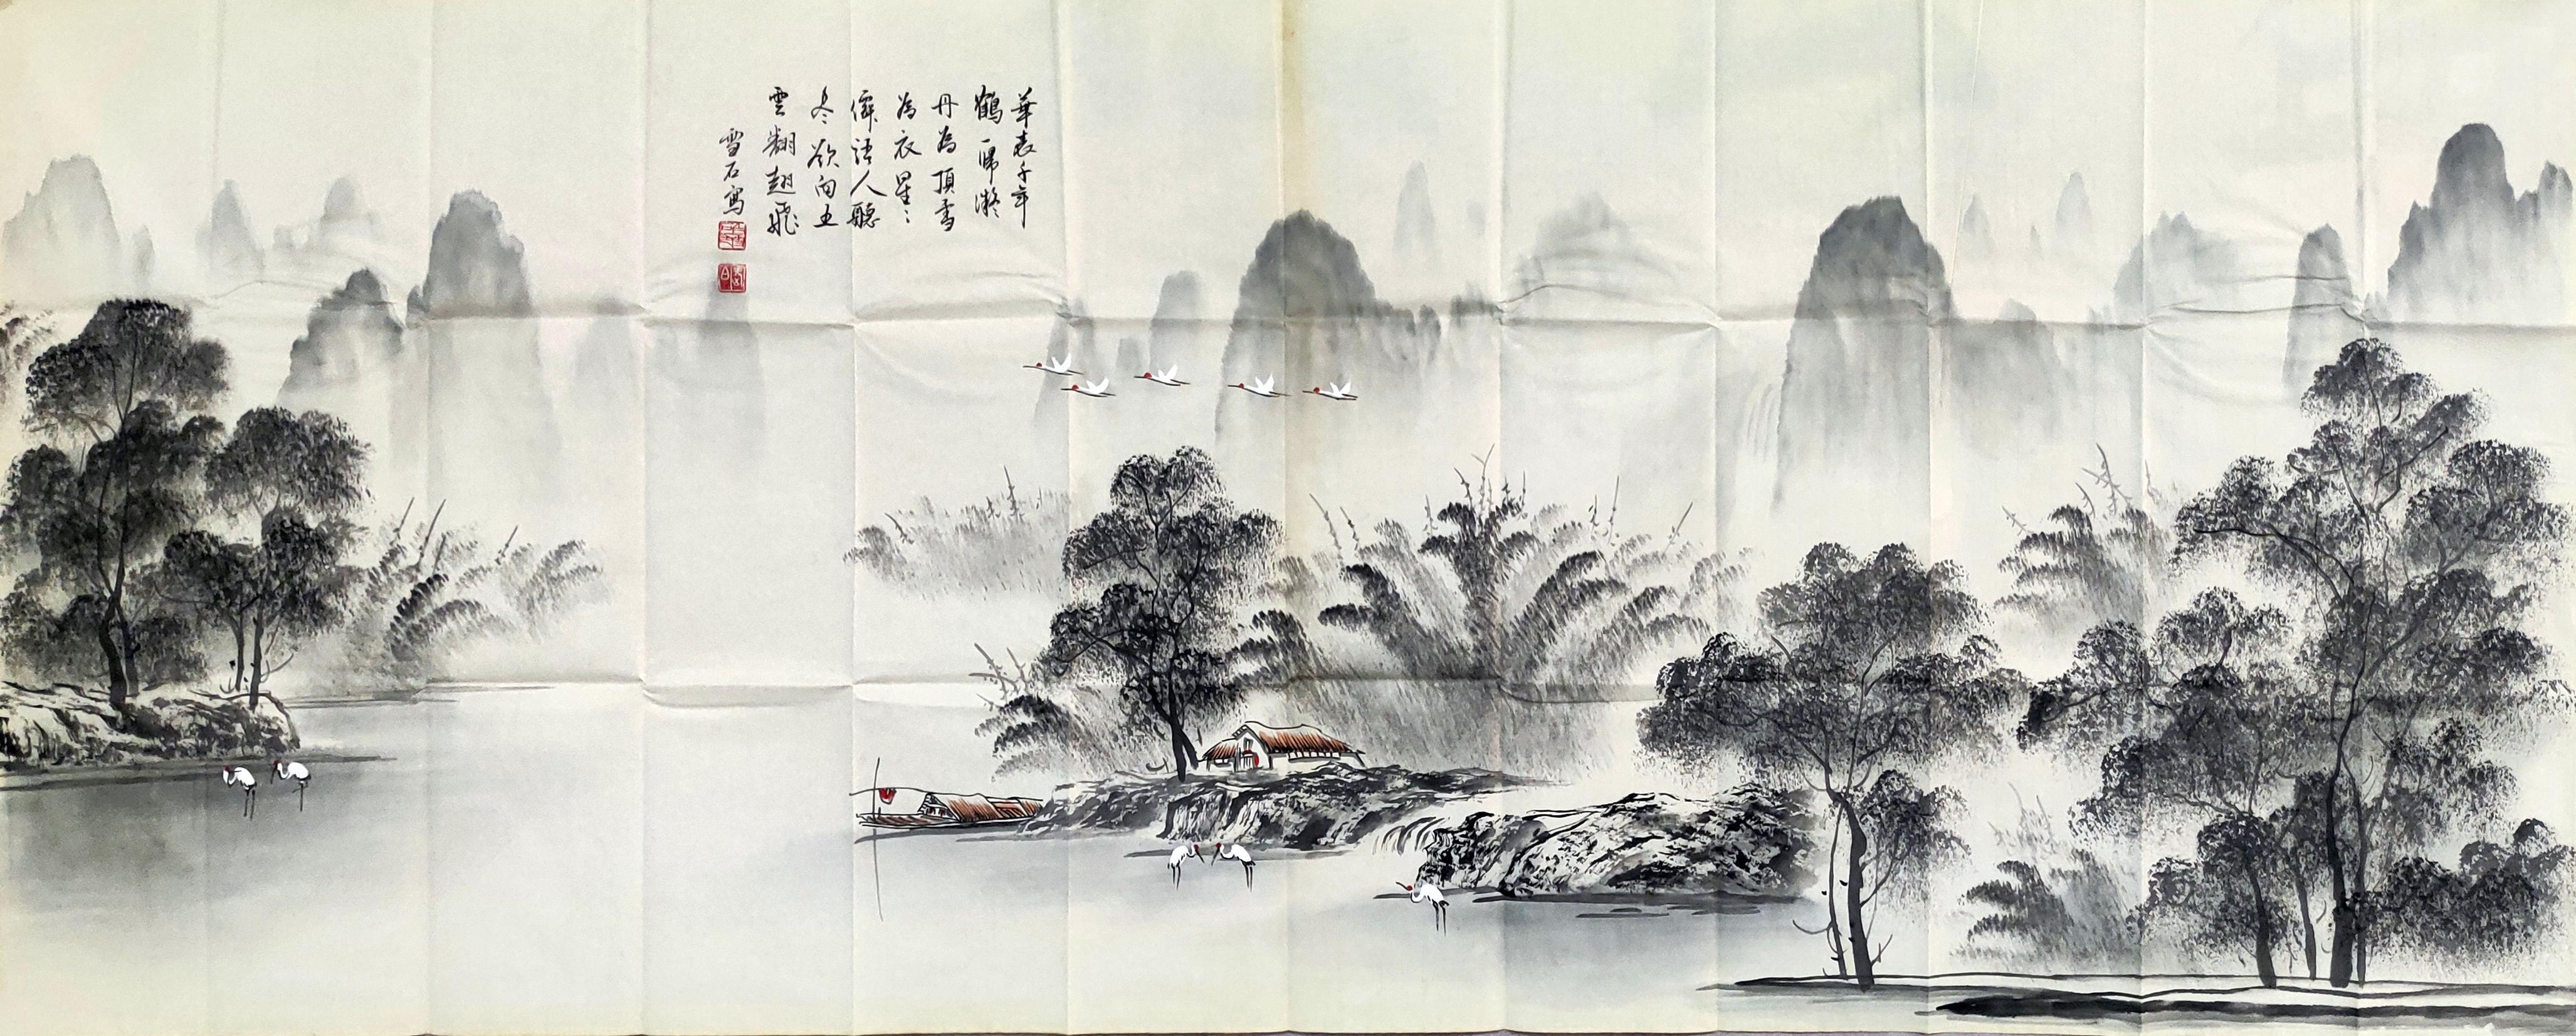 華表千年
鶴一歸凝
丹為頂雪
為衣星〻
僊語人聽
尽欲向五
雲翻翅飛
雪石寫